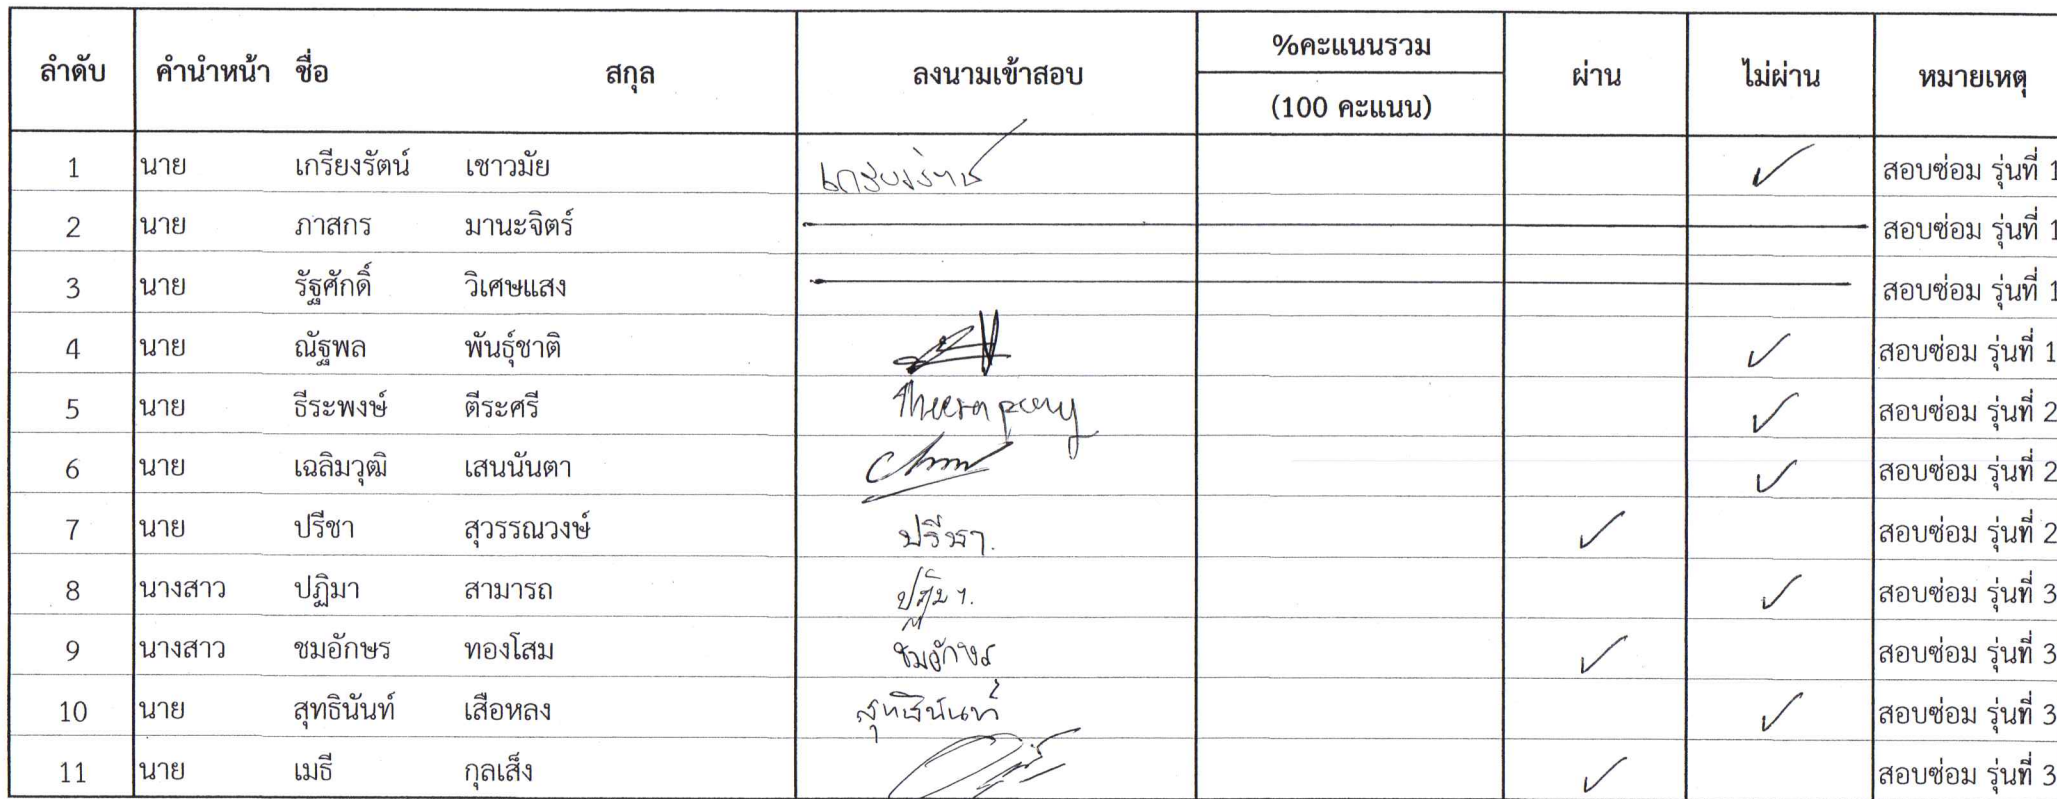 ลำดับ คำนำหน้า ชื่อ สกุล ลงนามเข้าสอบ %คะแนนรวม (100 คะแนน) ผ่าน ไม่ผ่าน หมายเหตุ
1 นาย เกรียงรัตน์ เชาวมัย เกรียงรัตน์ ✓ สอบซ่อม รุ่นที่ 1
2 นาย ภาสกร มานะจิตร์ สอบซ่อม รุ่นที่ 1
3 นาย รัฐศักดิ์ วิเศษแสง สอบซ่อม รุ่นที่ 1
4 นาย ณัฐพล พันธุ์ชาติ ✓ สอบซ่อม รุ่นที่ 1
5 นาย ธีระพงษ์ ตีระศรี Theerapong ✓ สอบซ่อม รุ่นที่ 2
6 นาย เฉลิมวุฒิ เสนนันตา ✓ สอบซ่อม รุ่นที่ 2
7 นาย ปรีชา สุวรรณวงษ์ ปรีชา. ✓ สอบซ่อม รุ่นที่ 2
8 นางสาว ปฏิมา สามารถ ปฏิมา. ✓ สอบซ่อม รุ่นที่ 3
9 นางสาว ชมอักษร ทองโสม ชมอักษร ✓ สอบซ่อม รุ่นที่ 3
10 นาย สุทธินันท์ เสือหลง สุทธินันท์ ✓ สอบซ่อม รุ่นที่ 3
11 นาย เมธี กุลเส็ง ✓ สอบซ่อม รุ่นที่ 3